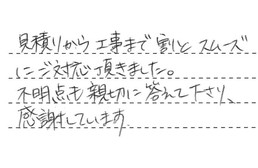 見積りから工事まで割とスムーズ
にご対応頂きました。
不明点も親切に答えて下さり、
感謝しています